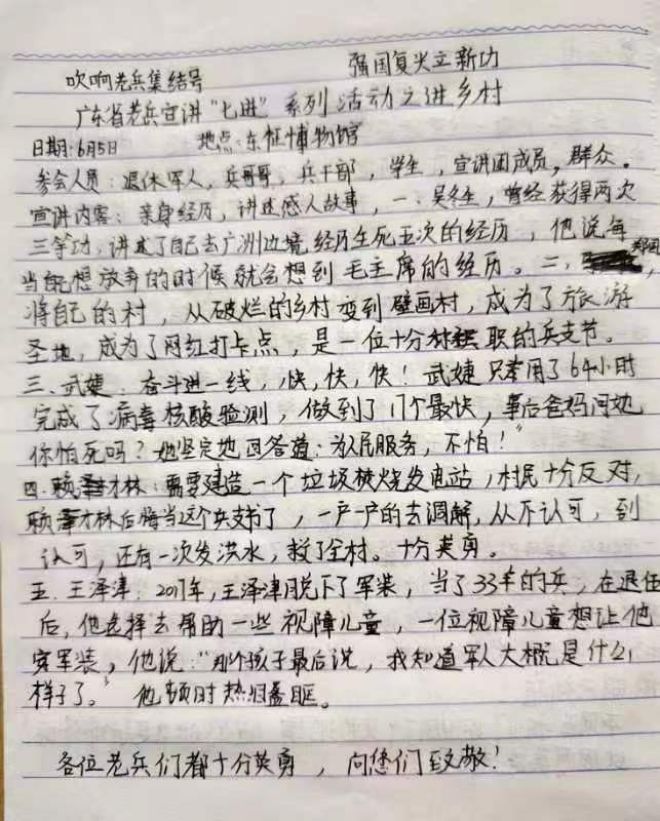 吹响老兵集结号 强国复兴立新功
广东省老兵宣讲"七进"系列活动之进乡村
日期:6月5日 地点:东征博物馆
参会人员:退休军人,兵哥哥,兵干部,学生,宣讲团成员,群众。
宣讲内容:亲身经历,讲述感人故事,一、吴冬生,曾经获得两次
三等功,讲述了自己去广洲边境经历生死五次的经历,他说每
当能想放弃的时候就会想到毛主席的经历。二、
将自己的村,从破烂的乡村变到壁画村,成为了旅游
圣地,成为了网红打卡点,是一位十分 职的兵支书。
三、武婕:奋斗进一线,快,快,快!武婕只李用了64小时
完成了病毒核酸验测,做到了17个最快,事后爸妈问她
你怕死吗?她坚定地回答道:为人民服务,不怕!"
四、赖 才林:需要建造一个垃圾焚烧发电站,村民十分反对,
赖 才林后悔当这个兵支书了,一户一户的去调解,从不认可,到
认可,还有一次发洪水,救了全村。十分英勇。
五、王泽津:2017年,王泽津脱下了军装,当了33年的兵,在退伍
后,他选择去帮助一些视障儿童,一位视障儿童想让他
穿军装,他说:"那个孩子最后说,我知道军人大概是什么
样子了。"他顿时热泪盈眶。
各位老兵们都十分英勇,向您们致敬!